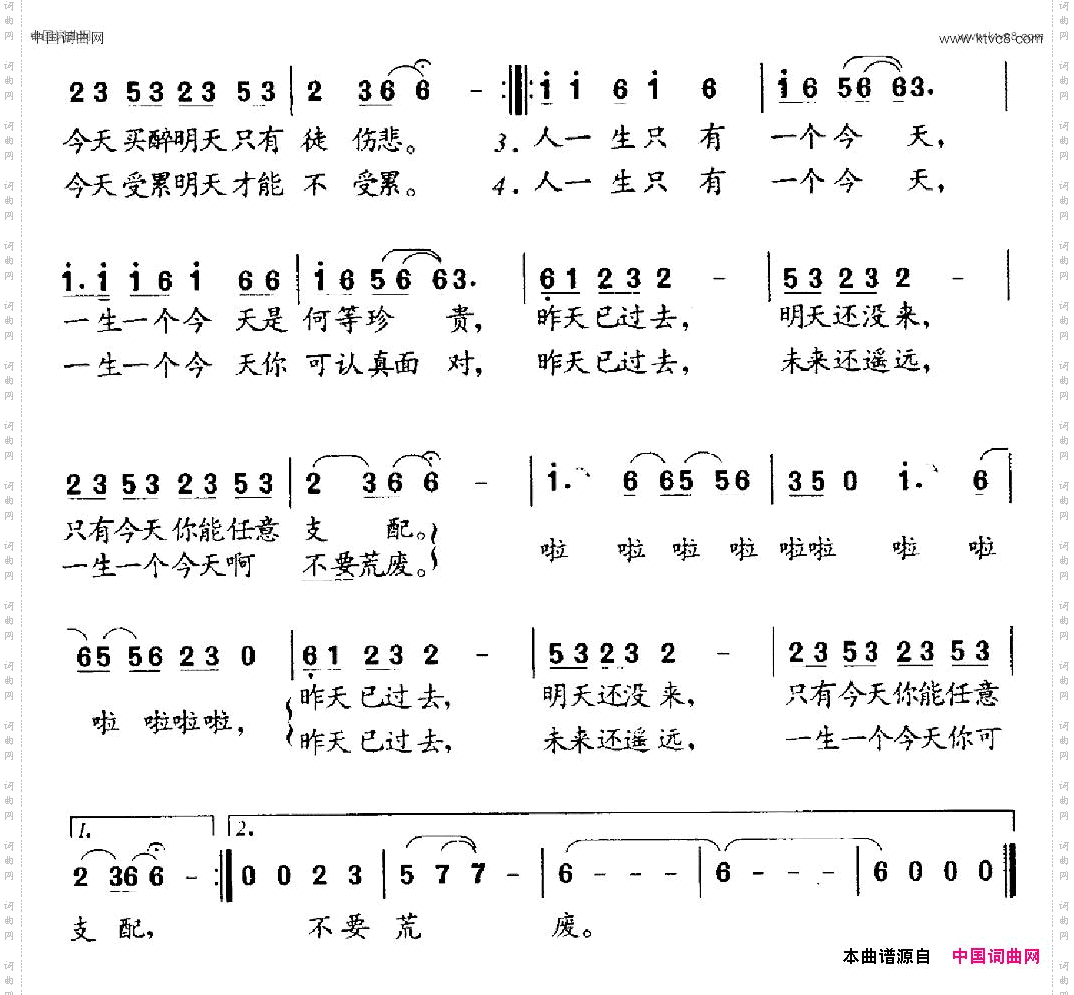 中国词曲网 www.ktvc8.com
2 3 5 3 2 3 5 3 | 2 3 6 6 - :‖: i i 6 i 6 | i 6 5 6 6 3. |
今天买醉明天只有 徒 伤悲。 3. 人一 生只 有 一个今 天,
今天受累明天才能 不 受累。 4. 人一 生只 有 一个今 天,
i. i i 6 i 6 6 | i 6 5 6 6 3. | 6 1 2 3 2 - | 5 3 2 3 2 - |
一生一个今 天是 何等珍 贵, 昨天已过去, 明天还没来,
一生一个今 天你 可认真面 对, 昨天已过去, 未来还遥远,
2 3 5 3 2 3 5 3 | 2 3 6 6 - | i. 6 6 5 5 6 | 3 5 0 i. 6 |
只有今天你能任意 支 配。
一生一个今天啊 不要荒废。
啦 啦 啦 啦 啦啦 啦 啦
6 5 5 6 2 3 0 | 6 1 2 3 2 - | 5 3 2 3 2 - | 2 3 5 3 2 3 5 3 |
啦 啦啦啦,
昨天已过去, 明天还没来, 只有今天你能任意
昨天已过去, 未来还遥远, 一生一个今天你可
1. 2.
2 3 6 6 - :‖ 0 0 2 3 | 5 7 7 - | 6 - - - | 6 - - - | 6 0 0 0 ‖
支 配, 不要 荒 废。
本曲谱源自 中国词曲网